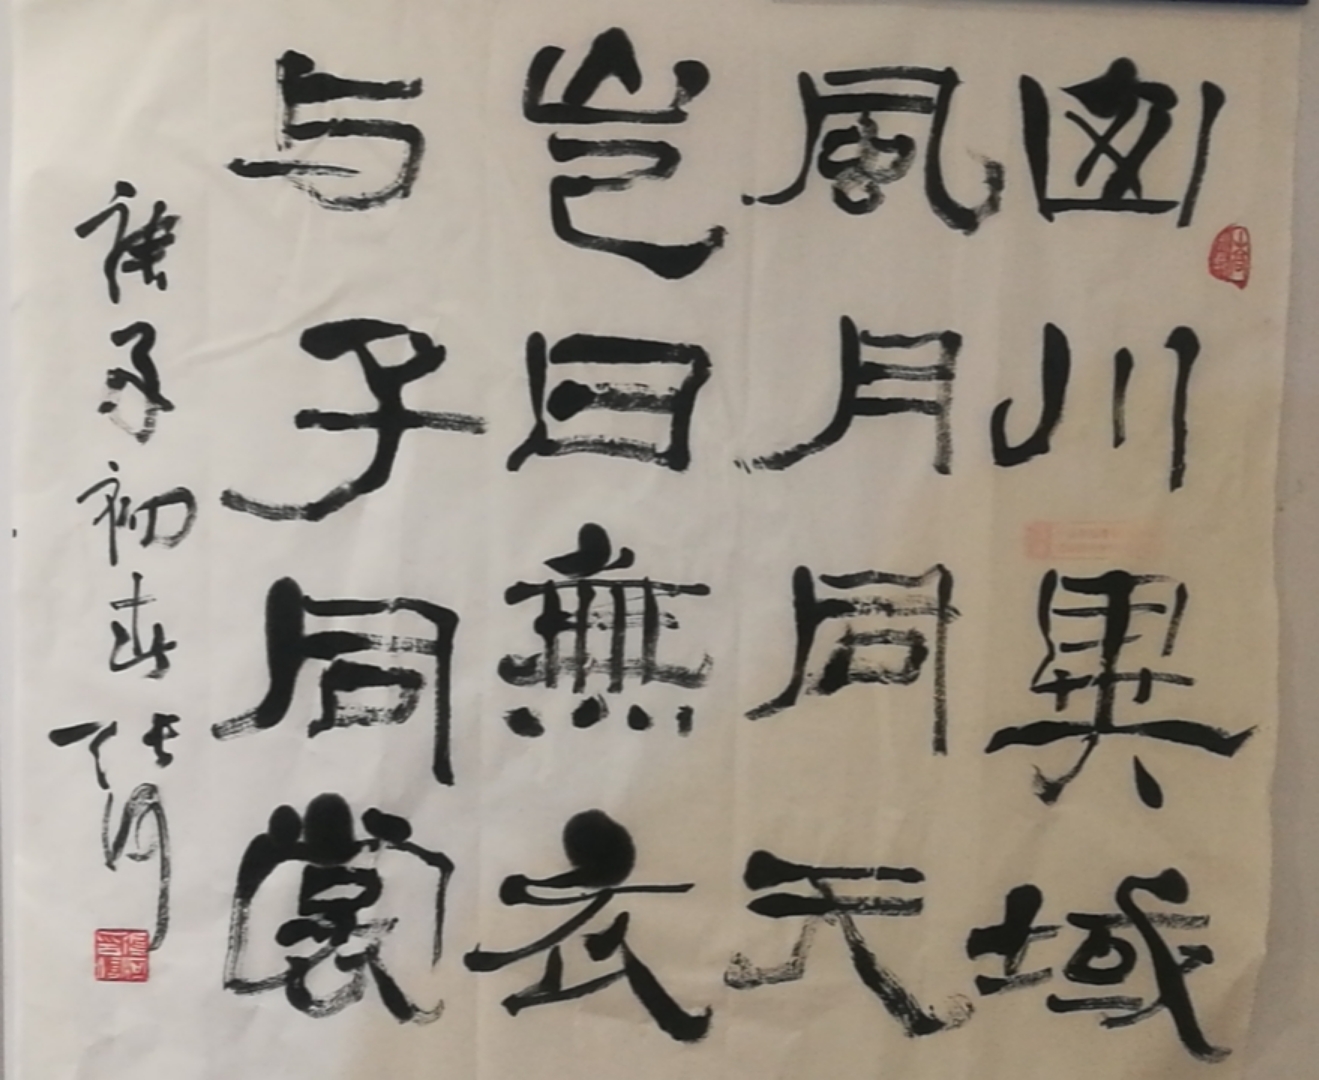 山川異域
風月同天
岂曰無衣
与子同裳
庚子初春